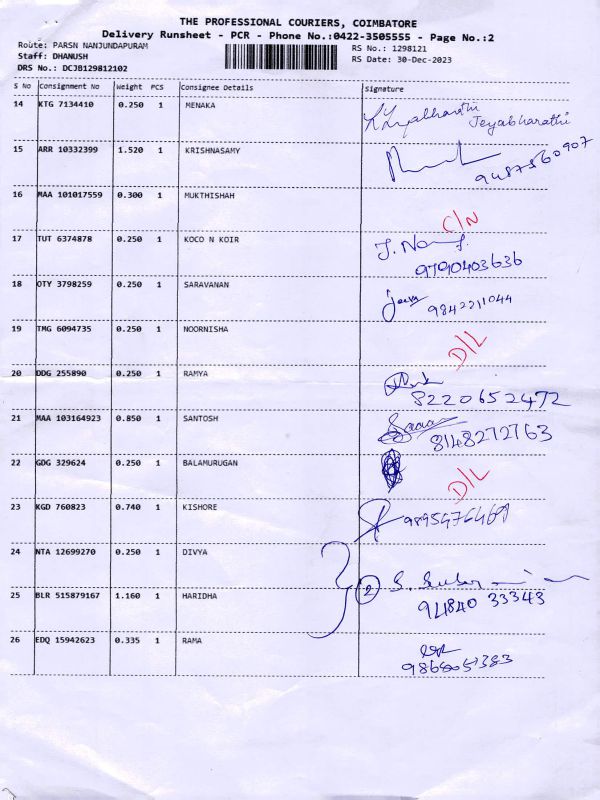 THE PROFESSIONAL COURIERS, COIMBATORE
Delivery Runsheet - PCR - Phone No.:0422-3505555 - Page No.:2
Route: PARSN NANJUNDAPURAM RS No.: 1298121
Staff: DHANUSH RS Date: 30-Dec-2023
DRS No.: DCJB129812102
S No Consignment No Weight PCS Consignee Details Signature
14 KTG 7134410 0.250 1 MENAKA
Jeyabharathi
15 ARR 10332399 1.520 1 KRISHNASAMY
9487560907
16 MAA 101017559 0.300 1 MUKTHISHAH
C/N
17 TUT 6374878 0.250 1 KOCO N KOIR
9790403636
18 OTY 3798259 0.250 1 SARAVANAN
9842211044
19 TMG 6094735 0.250 1 NOORNISHA
D/L
20 DDG 255890 0.250 1 RAMYA
8220652472
21 MAA 103164923 0.850 1 SANTOSH
8148272763
22 GDG 329624 0.250 1 BALAMURUGAN
D/L
23 KGD 760823 0.740 1 KISHORE
24 NTA 12699270 0.250 1 DIVYA
2
25 BLR 515879167 1.160 1 HARIDHA
33343
26 EDQ 15942623 0.335 1 RAMA